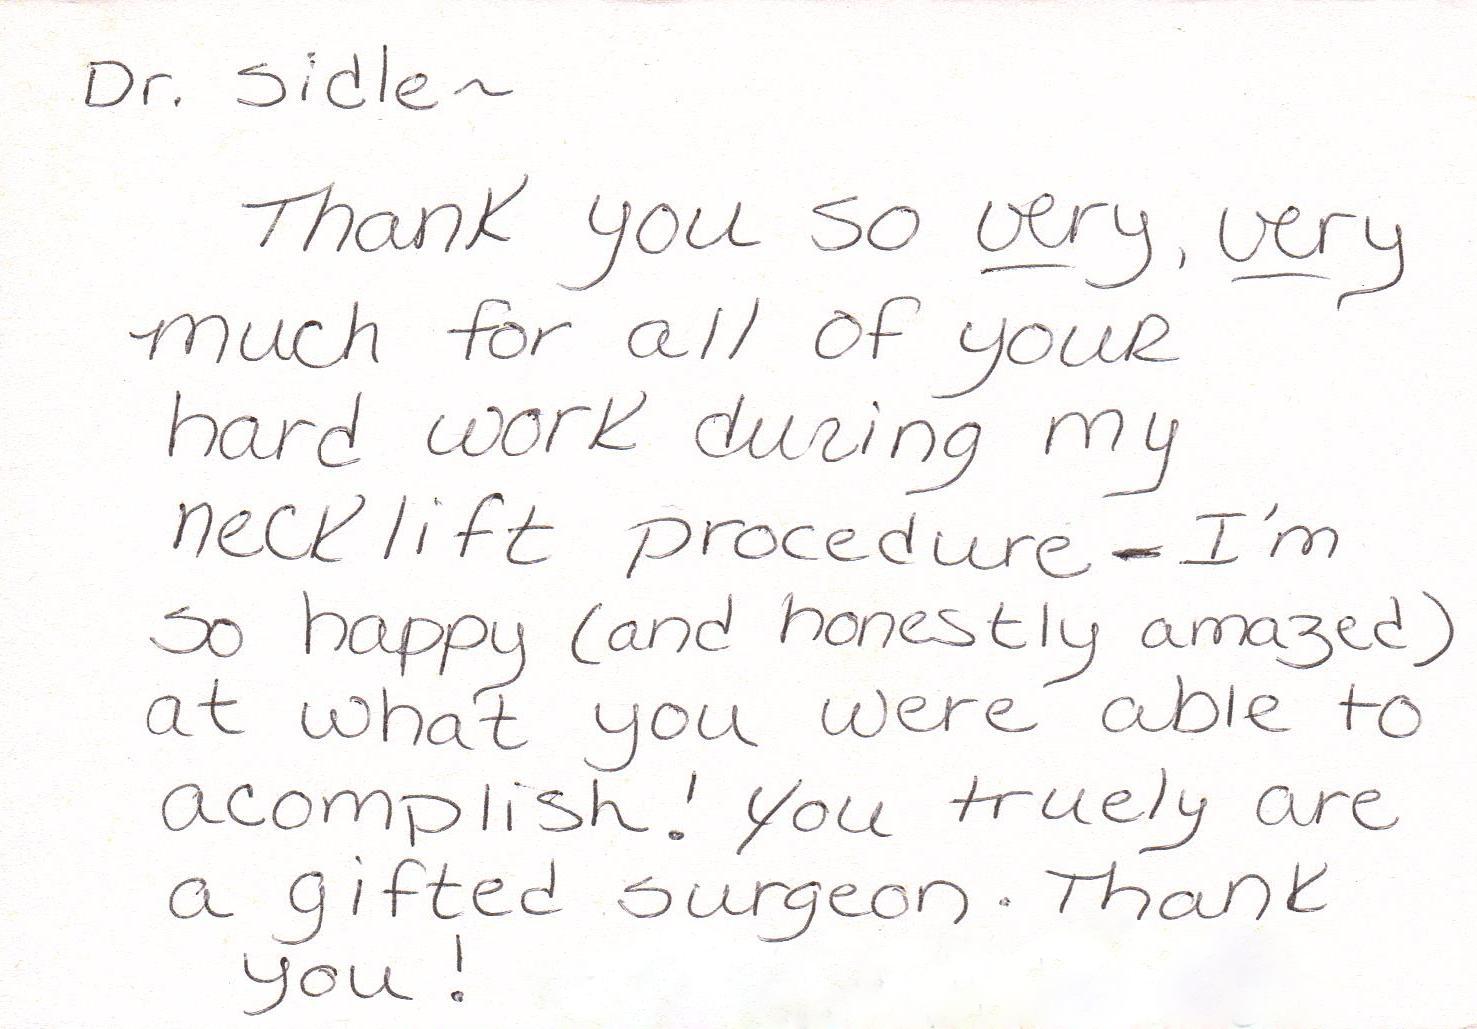 Dr. Sidle~
Thank you so very, very
much for all of your
hard work during my
neck lift procedure - I'm
so happy (and honestly amazed)
at what you were able to
acomplish! You truely are
a gifted surgeon. Thank
you!